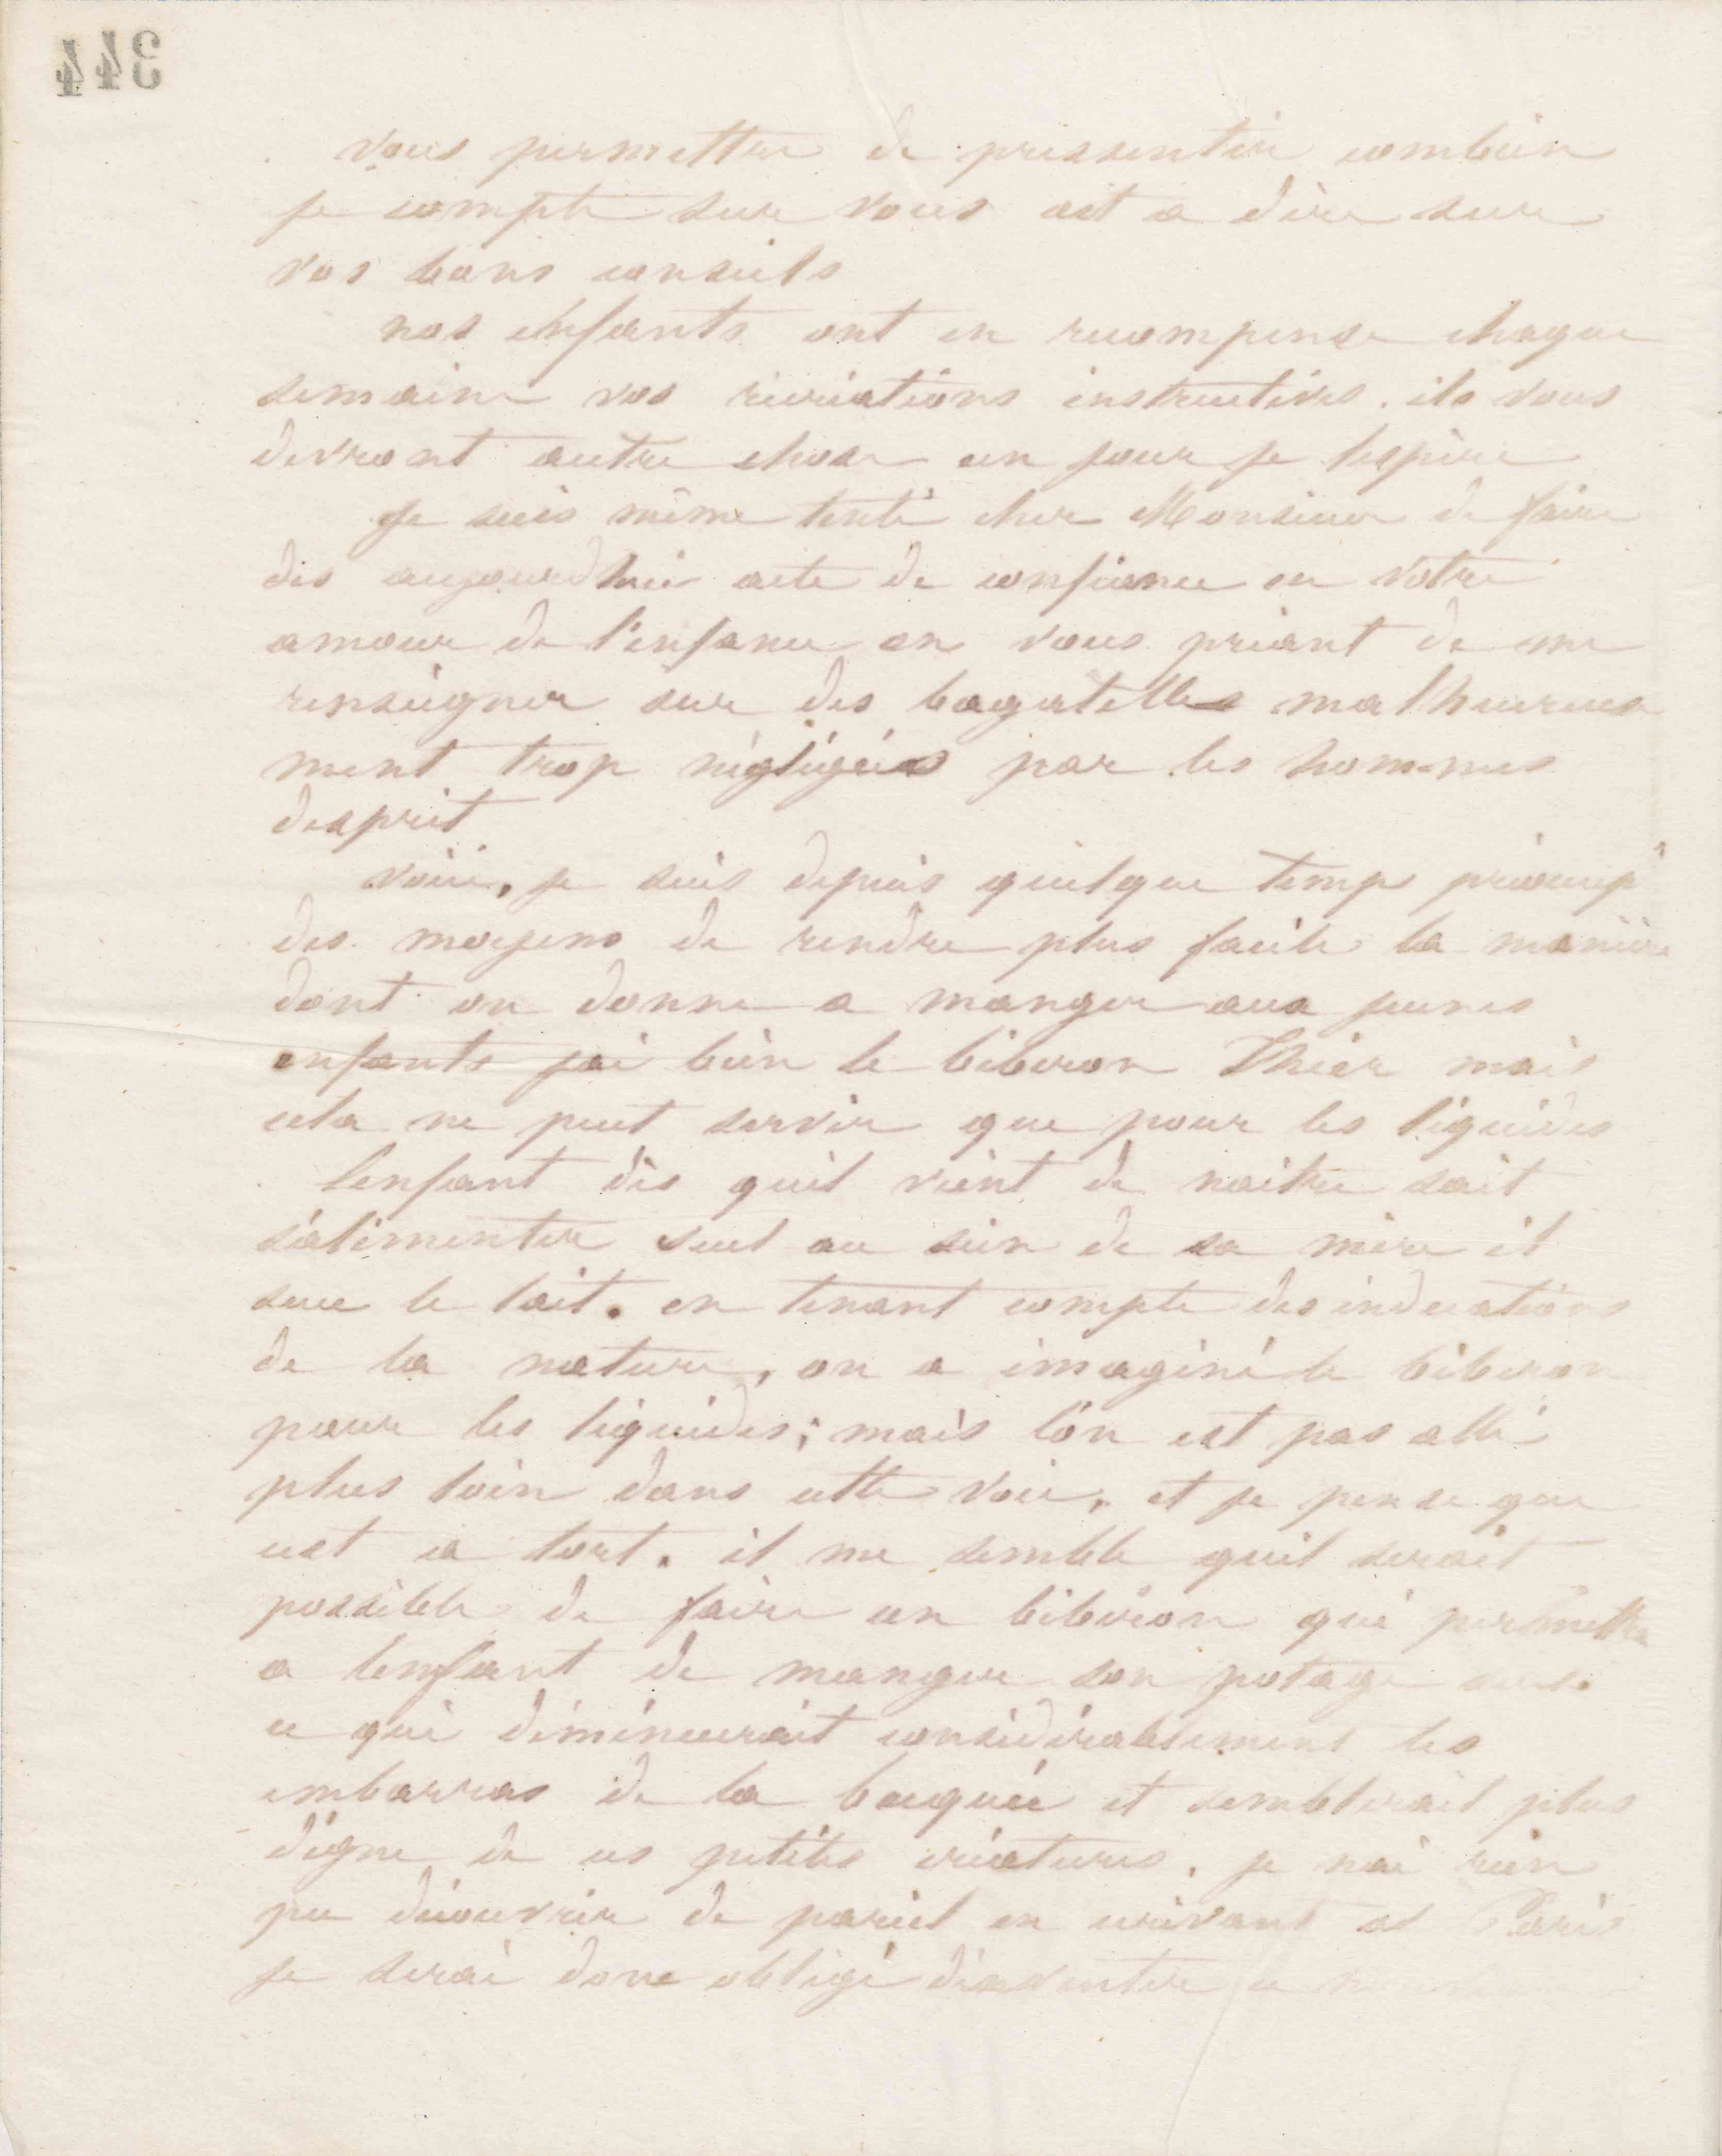 344
vous permettre de pressentir combien
je compte sur vous cet a dire sur
vos bons conseils
nos enfants ont en recompense chaque
semaine vos récréations instructives. ils vous
devront autre chose un jour je lespère
Je suis même tenté cher Monsieur de faire
dès aujourdhui acte de confiance en votre
amour de l'enfance en vous priant de me
renseigner sur des bagatelles malheureuse
ment trop négligées par les hommes
desprit
voici, je suis depuis quelque temps préoccupé
des moyens de rendre plus facile la manière
dont on donne a manger aux jeunes
enfants jai bien le biberon Thier mais
cela ne peut servir que pour les liquides
lenfant dès quil vient de naitre sait
s'alimenter seul au sein de sa mère il
suce le lait. en tenant compte des indications
de la nature, on a imaginé le biberon
pour les liquides; mais l'on est pas allé
plus loin dans cette voie, et je pense que
cest a tort. il me semble quil serait
possible de faire un biberon qui permettra
a lenfant de manger son potage seul.
ce qui diminuerait considérablement les
embarras de la becquée et semblerait plus
digne de ces petites créatures. je nai rien
pu découvrir de pareil en écrivant à Paris
je serai donc obligé d'inventer ce